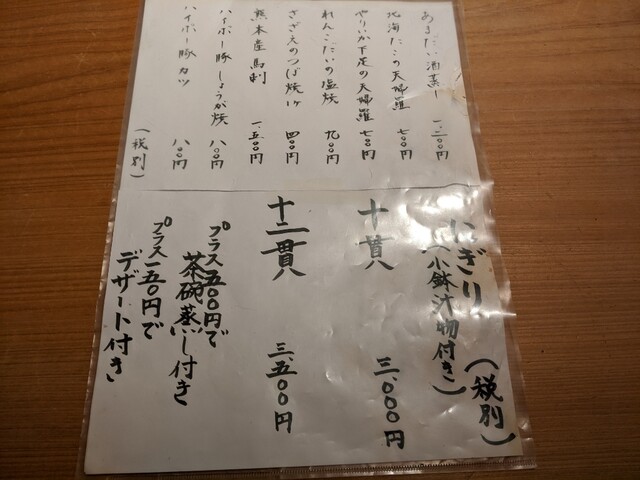 あまだい酒蒸し 一、二〇〇円
北海だこの天婦羅 七〇〇円
やりいか下足の天婦羅 七〇〇円
れんこだいの塩焼 九〇〇円
さざえのつぼ焼 四〇〇円
熊本産馬刺 一、五〇〇円
ハイポー豚しょうが焼 八〇〇円
ハイポー豚カツ 八〇〇円
（税別）
にぎり（税別）
（小鉢汁物付き）
十貫 三、〇〇〇円
十二貫 三、五〇〇円
プラス五〇〇円で
茶碗蒸し付き
プラス一五〇円で
デザート付き